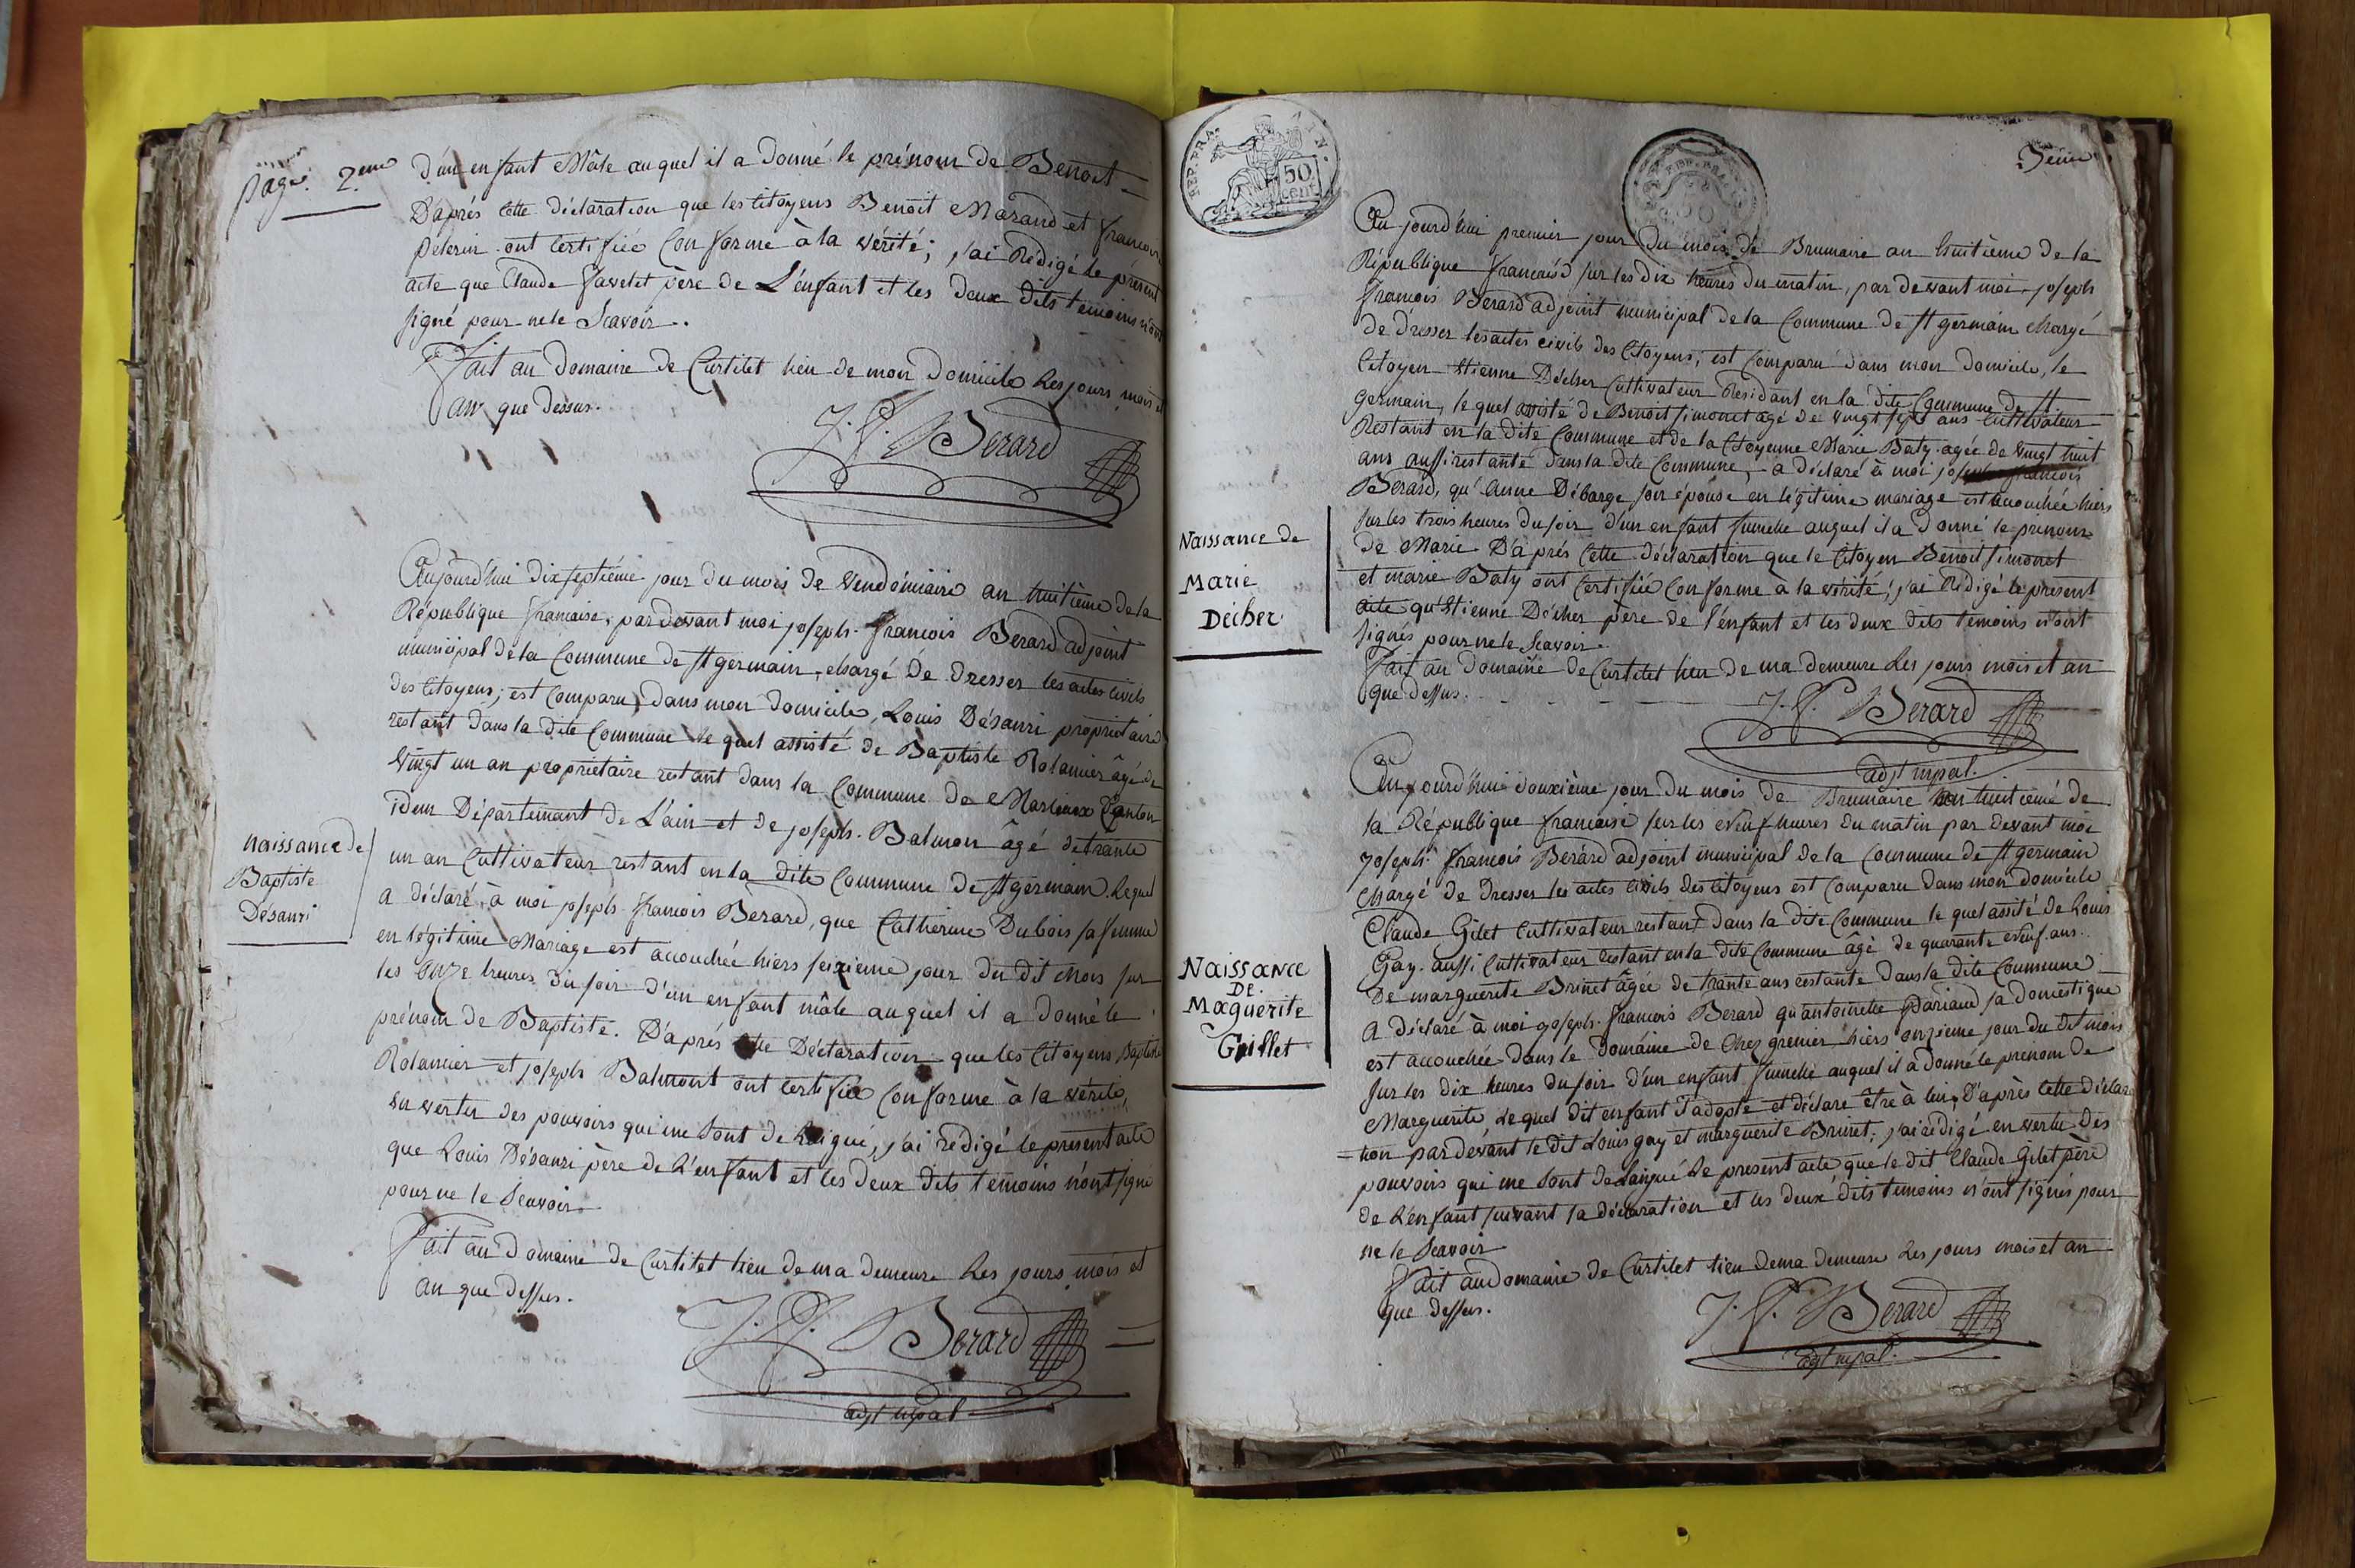 page. 2.eme
D'un enfant Mâle auquel il a Donné le prénom de Benoit =
D'aprés Cette déclaration que les Citoyens Benoit Marand et francois
pelerin ont Certifiée Conforme à la vérité; j'ai Rédigé le présent
acte que Claude favetet père de L'enfant et les Deux dits temoins n'ont
signé pour ne le Scavoir.
Fait au Domaine de Curtilet lieu de mon Domicile Les jours mois et
an que dessus.
J. f. Berard
Aujourd'hui dix septiéme jour Du mois de Vendémiaire an huitiéme de la
République francaise, par devant moi joseph. francois Berard adjoint
municipal de la Commune de St germain, chargé De Dresser les actes Civils
des Citoyens; est Comparu Dans mon Domicile, Louis Désauzi propriétaire
restant Dans la dite Commune le quel assisté de Baptiste Rolancier âgé de
Vingt un an propriétaire restant dans la Commune de Marlieux Canton
idem Départemant de L'ain et de joseph. Balmon âgé de trante
un an Cultivateur restant en la dite Commune de St germain. Lequel
a déclaré à moi joseph francois Berard, que Catherine Dubois sa femme
en légitime Mariage est accouchée hiers seizieme jour du dit mois sur
les onze heures Du soir d'un enfant mâle auquel il a donné le
prénom de Baptiste. D'aprés cette Déclaration que les Citoyens Baptiste
Rolancier et joseph Balmont ont certifiée Conforme à la vérité,
En vertu des pouvoirs qui me sont délaigué, j'ai rédigé le present acte
que Louis Désauzi père de L'enfant et les Deux dits témoins n'ont signé
pour ne le Scavoir.
Fait au Domaine de Curtilet lieu de ma demeure Les jours mois et
an que dessus.
J. f. Berard
adjt mpal
naissance de
Baptiste
Désauzi
REP. FRA.
50
cent
3eme
Au jourd'hui premier jour du mois de Brumaire an huitième de la
République francaise sur les dix heures du matin, par devant moi joseph
francois Berard adjoint municipal de la Commune de St germain chargé
de dresser les actes civils des Citoyens; est Comparu dans mon domicile, le
Citoyen Etienne Décher Cultivateur Residant en la dite Commune de St
Germain, lequel assisté de Benoit Simonet agé de vingt sept ans Cultivateur
Restant en la dite Commune et de la Citoyenne Marie Baty agée de vingt huit
ans aussi restante Dans la dite Commune, a déclaré à moi joseph francois
Berard, qu'Anne Débarge son épouse en légitime mariage est accouchée hiers
sur les trois heures du soir d'un enfant fumelle auquel il a Donné le prenom
de Marie. D'aprés Cette déclaration que le Citoyen Benoit Simonet
et marie Baty ont Certifiée Conforme à la vérité; j'ai Rédigé le present
acte qu'Etienne Décher père de l'enfant et les deux dits témoins n'ont
signés pour ne le Scavoir.
Fait au Domaine de Curtilet lieu de ma demeure Les jours mois et an
que dessus.
J. f. Berard
adjt mpal.
Naissance de
Marie
Décher
Aujourd'hui douxième jour du mois de Brumaire an huitiemé de
la République francaise sur les Neuf heures du matin par devant moi
joseph francois Berard adjoint municipal de la Commune de St germain
chargé de Dresser les actes Civils des Citoyens est Comparu Dans mon domicile
Claude Gilet Cultivateur restant dans la dite Commune le quel assité de Louis
Gay. aussi Cultivateur restant en la dite Commune âgé de quarante Neuf ans.
De marguerite Brunet âgée de trante ans restante dans la dite Commune
A déclaré à moi joseph. francois Berard qu'antoinette pariaud sa domestique
est accouchée dans le Domaine de Chez grenier hiers onzieme jour du dit mois
sur les dix heures du soir d'un enfant fumelle auquel il a donné le prénom de
Marguerite, Le quel dit enfant j'adopte et déclare être à lui, D'après cette déclara
=tion par devant le dit Louis gay et marguerite Brunet; j'ai redigé en vertu Des
pouvoirs qui me sont delaigué Le present acte que le dit Claude Gilet père
de L'enfant suivant sa déclaration et les deux dits temoins n'ont signés pour
ne le Scavoir
Fait au domaine de Curtilet lieu de ma demeure Les jours mois et an
que dessus.
J. f. Berard
adjt mpal.
Naissance
De
Maguerite
Guillet